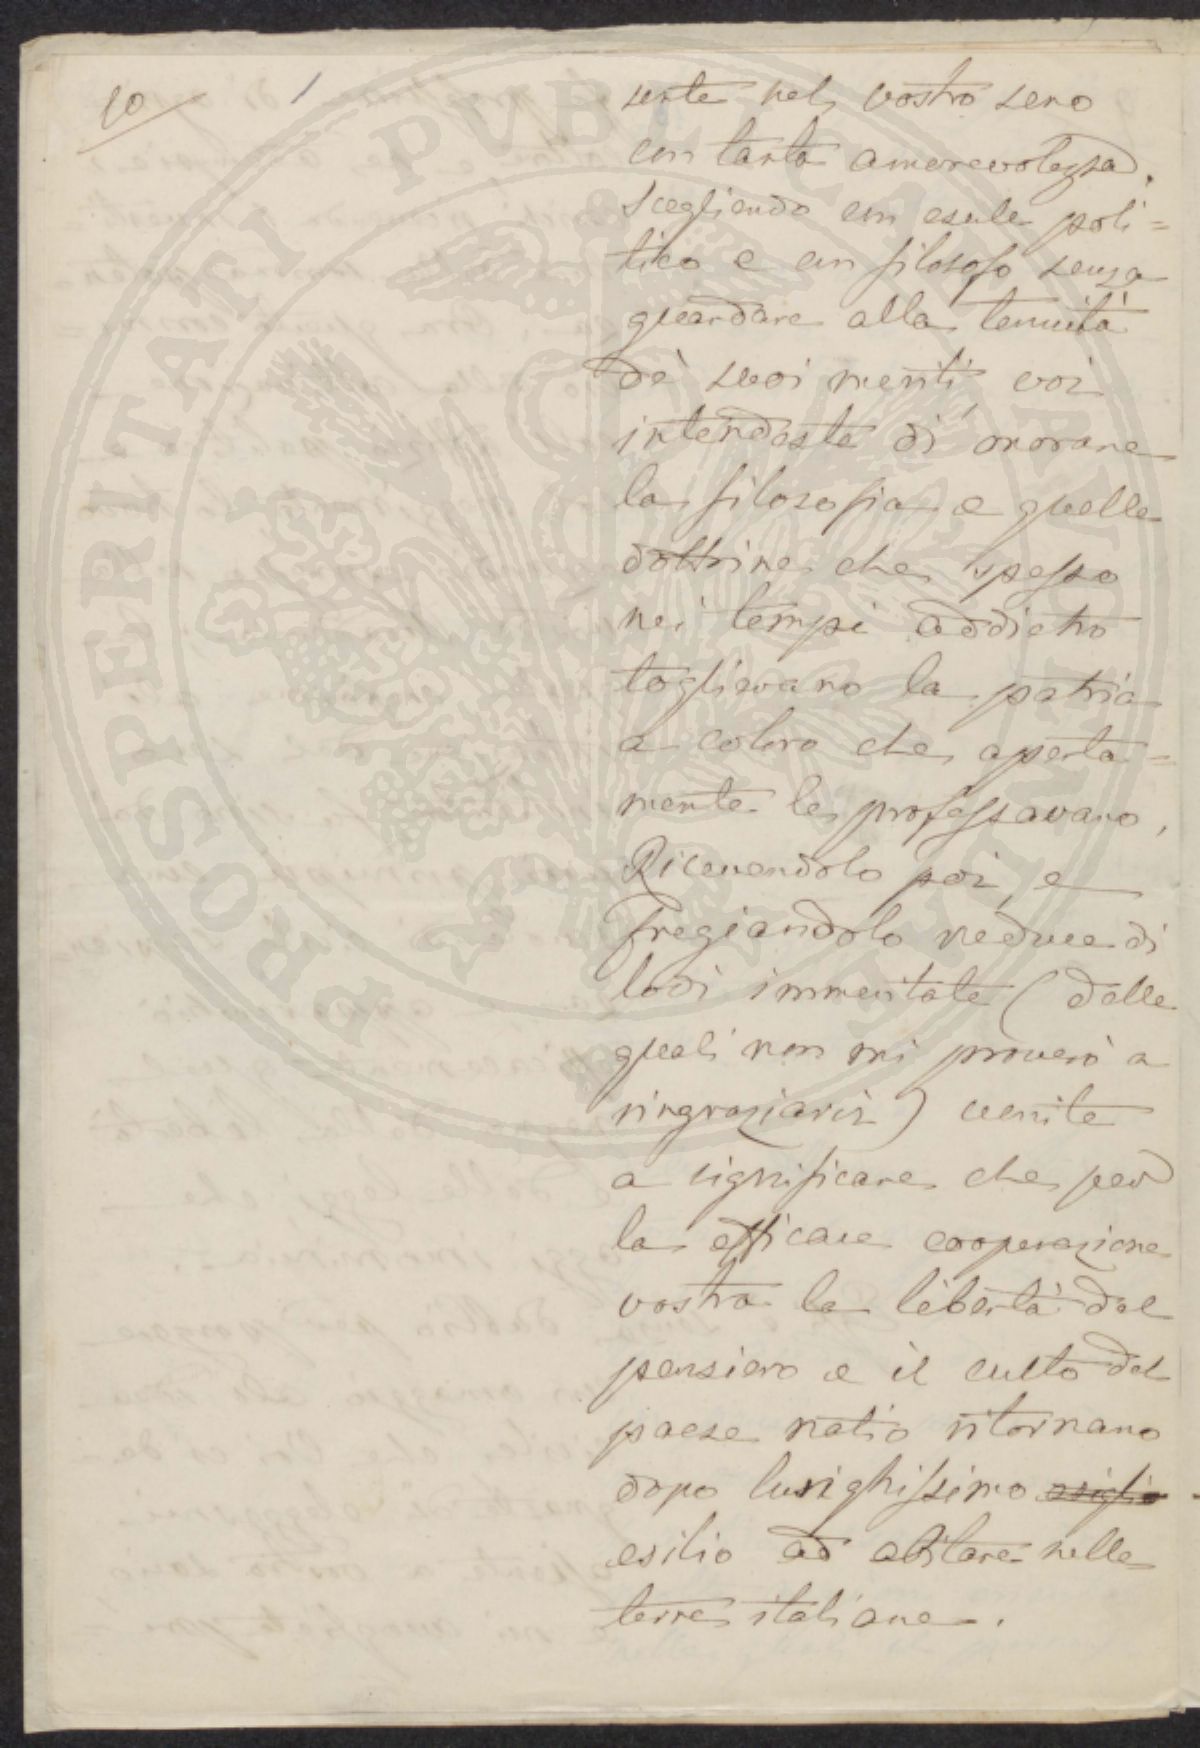 10
sente nel vostro seno
con tanta amorevolezza.
Scegliendo un esule poli=
tico e un filosofo senza
guardare alla tenuità
de' suoi meriti, voi
intendeste di onorare
la filosofia e quelle
dottrine che spesso
nei tempi addietro
toglievano la patria
a coloro che aperta=
mente le professavano.
Ricevendolo poi, e
fregiandolo reduce di
lodi immeritate (delle
quali non mi proverò a
ringraziarvi) venite
a significare che per
la efficace cooperazione
vostra la libertà del
pensiero e il culto del
paese natio ritornano
dopo lunghissimo esiglio
esilio ad abitare nelle
terre italiane.
PROSPERITATI PVBLICAE AVGENDAE